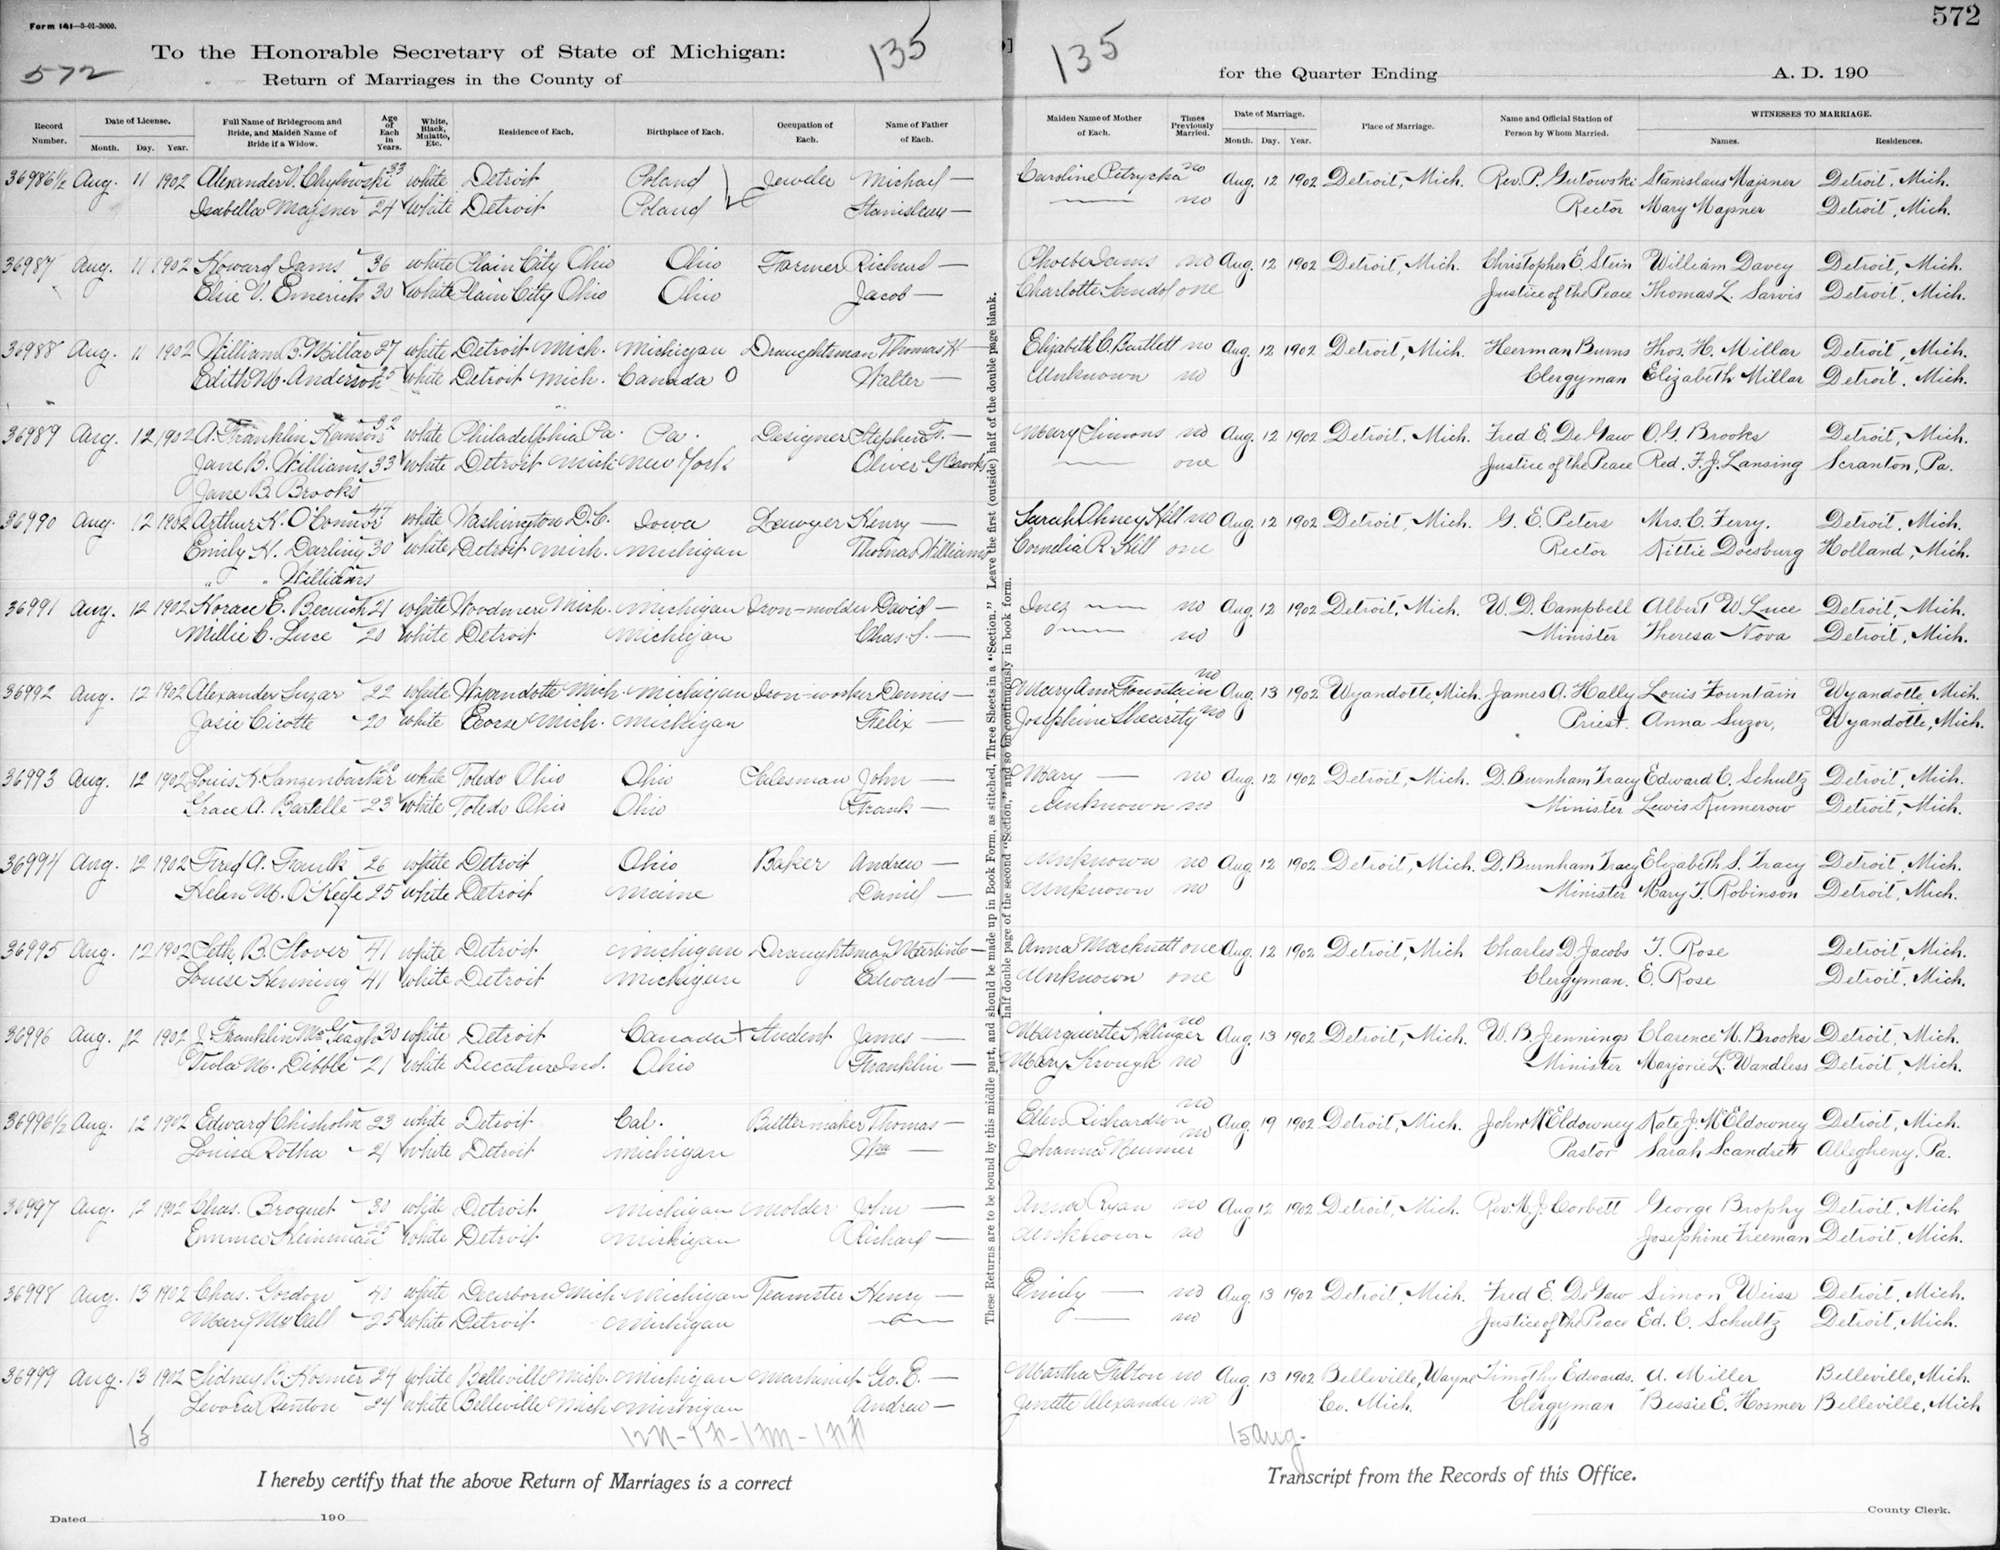 Form 141—5-01-3000.
572
To the Honorable Secretary of State of Michigan:
135
135
572
Return of Marriages in the County of
for the Quarter Ending
A. D. 190
Record Number.
Date of License.
Month. Day. Year.
Full Name of Bridegroom and Bride, and Maiden Name of Bride if a Widow.
Age of Each in Years.
White, Black, Mulatto, Etc.
Residence of Each.
Birthplace of Each.
Occupation of Each.
Name of Father of Each.
Maiden Name of Mother of Each.
Times Previously Married.
Date of Marriage.
Month. Day. Year.
Place of Marriage.
Name and Official Station of Person by Whom Married.
WITNESSES TO MARRIAGE.
Names.
Residences.
36986½ Aug. 11 1902 Alexander V. Chylowski 33 white Detroit Poland Jeweler Michael — Caroline Petrycka no Aug. 12 1902 Detroit, Mich. Rev. P. Gutowski Stanislaus Majsner Detroit, Mich.
Isabella Majsner 24 white Detroit Poland Stanislaus — — no Rector Mary Majsner Detroit, Mich.
36987 Aug. 11 1902 Howard Iams 36 white Plain City Ohio Ohio Farmer Richard — Phoebe Iams no Aug. 12 1902 Detroit, Mich. Christopher E. Stein William Davey Detroit, Mich.
Elsie V. Emerick 30 white Plain City Ohio Ohio Jacob — Charlotte one Justice of the Peace Thomas L. Sarvis Detroit, Mich.
36988 Aug. 11 1902 William B. Millar 27 white Detroit Mich. Michigan Draughtsman Thomas H — Elizabeth C. Bartlett no Aug. 12 1902 Detroit, Mich. Herman Burns Thos. H. Millar Detroit, Mich.
Edith M. Anderson 25 white Detroit Mich. Canada 0 Walter — Unknown no Clergyman Elizabeth Millar Detroit, Mich.
36989 Aug. 12 1902 A. Franklin 32 white Philadelphia Pa. Pa. Designer Stephen F. — Mary Simons no Aug. 12 1902 Detroit, Mich. Fred E. De Gaw O. G. Brooks Detroit, Mich.
Jane B. Williams 33 white Detroit Mich New York Oliver G Brooks — one Justice of the Peace Red. F. J. Lansing Scranton, Pa.
Jane B. Brooks
36990 Aug. 12 1902 Arthur H. O'Connor 47 white Washington D.C. Iowa Lawyer Henry — Sarah Hill no Aug. 12 1902 Detroit, Mich. G. E. Peters Mrs. C. Ferry. Detroit, Mich.
Emily H. Darling 30 white Detroit Mich. Michigan Thomas Williams Cornelia R. Hill one Rector Kittie Doesburg Holland, Mich.
" " Williams
36991 Aug. 12 1902 Horace E. 21 white Woodmere Mich. Michigan Iron-molder David — Inez — no Aug. 12 1902 Detroit, Mich. W. D. Campbell Albert W Luce Detroit, Mich.
Millie C. Luce 20 white Detroit Michigan Chas. S. — — no Minister Theresa Nova Detroit, Mich.
36992 Aug. 12 1902 Alexander Suzar 22 white Wyandotte Mich Michigan Iron-worker Dennis — Mary Ann Fountain no Aug. 13 1902 Wyandotte, Mich. James A. Hally Louis Fountain Wyandotte, Mich.
Josie Cicotte 20 white Ecorse Mich. Michigan Felix — Josephine no Priest. Anna Suzor, Wyandotte, Mich.
36993 Aug. 12 1902 Louis K. Langenbacher white Toledo Ohio Ohio Salesman John — Mary — no Aug. 12 1902 Detroit, Mich. D. Burnham Tracy Edward C. Schultz Detroit, Mich.
Grace A. Bartelle 23 white Toledo Ohio Ohio Frank — Unknown no Minister Lewis Kumerow Detroit, Mich.
36994 Aug. 12 1902 Fred A. Faulk 26 white Detroit Ohio Baker Andrew — Unknown no Aug. 12 1902 Detroit, Mich. D. Burnham Tracy Elizabeth S. Tracy Detroit, Mich.
Helen M. O'Keefe 25 white Detroit Maine Daniel — Unknown no Minister Mary T. Robinson Detroit, Mich.
36995 Aug. 12 1902 Seth B. Stover 41 white Detroit Michigan Draughtsman Martin C — Anna Macknett one Aug. 12 1902 Detroit, Mich Charles D. Jacobs T. Rose Detroit, Mich.
Louise Henning 41 white Detroit Michigan Edward — Unknown one Clergyman. E. Rose Detroit, Mich.
36996 Aug. 12 1902 J. Franklin McGeagh 30 white Detroit Canada + Student James — Marguerite Klinger no Aug. 13 1902 Detroit, Mich. W. B. Jennings Clarence M. Brooks Detroit, Mich.
Viola M. Dibble 21 white Decature Ind. Ohio Franklin — Mary no Minister Marjorie L. Wandless Detroit, Mich.
36996½ Aug. 12 1902 Edward Chisholm 23 white Detroit Cal. Buttermaker Thomas — Ellen Richardson no Aug. 19 1902 Detroit, Mich. John McEldowney Kate J. McEldowney Detroit, Mich.
Louisa Rotha 21 white Detroit Michigan Wm — Johanna Neumer no Pastor Sarah Scandrett Allegheny, Pa.
36997 Aug. 12 1902 Chas. Broquet 30 white Detroit Michigan Molder John — Anna Ryan no Aug 12 1902 Detroit, Mich. Rev. M. J. Corbett George Brophy Detroit, Mich
Emma Heinman 25 white Detroit Michigan Richard — Unknown no Josephine Freeman Detroit, Mich.
36998 Aug. 13 1902 Chas. Gordon 40 white Dearborn Mich Michigan Teamster Henry — Emily — no Aug. 13 1902 Detroit, Mich. Fred E. De Gaw Simon Weiss Detroit, Mich.
Mary McCall 25 white Detroit Michigan — — no Justice of the Peace Ed. C. Schultz Detroit, Mich.
36999 Aug. 13 1902 Sidney B. Hosmer 24 white Belleville Mich. Michigan Machinist Geo. E. — Martha Tilton no Aug. 13 1902 Belleville, Wayne Timothy Edwards. A. Miller Belleville, Mich.
Levora Renton 24 white Belleville Mich Michigan Andrew — Jenette Alexander no Co. Mich. Clergyman Bessie E. Hosmer Belleville, Mich
15
15 Aug.
These Returns are to be bound by this middle part, and should be made up in Book Form, as stitched, Three Sheets in a "Section." Leave the first (outside) half of the double page blank.
half double page of the second "Section," and so on continuously in book form.
I hereby certify that the above Return of Marriages is a correct
Transcript from the Records of this Office.
Dated 190
County Clerk.